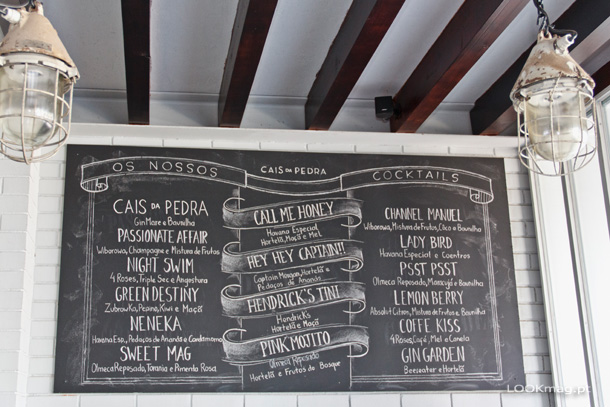 OS NOSSOS
CAIS DA PEDRA
COCKTAILS
CAIS DA PEDRA
Gin Mare e Baunilha
PASSIONATE AFFAIR
Wiborowa, Champagne e Mistura de Frutos
NIGHT SWIM
4 Roses, Triple Sec e Angostura
GREEN DESTINY
Zubrowka, Pepino, Kiwi e Maçã
NENEKA
Havana Esp., Pedaços de Ananás e Cardamomo
SWEET MAG
Olmeca Reposado, Toranja e Pimenta Rosa
CALL ME HONEY
Havana Especial
Hortelã, Maçã e Mel
HEY HEY CAPTAIN!!
Captain Morgan, Hortelã e
Pedaços de Ananás
HENDRICK'S TINI
Hendricks
Hortelã e Maçã
PINK MOJITO
Olmeca Reposado
Hortelã e Frutos do Bosque
CHANNEL MANUEL
Wiborowa, Mistura de Frutos, Côco e Baunilha
LADY BIRD
Havana Especial e Coentros
PSST PSST
Olmeca Reposado, Maracujá e Baunilha
LEMON BERRY
Absolut Citron, Mistura de Frutos e Baunilha
COFFE KISS
4 Roses, Café, Mel e Canela
GIN GARDEN
Beefeater e Hortelã
LOOKmag.pt